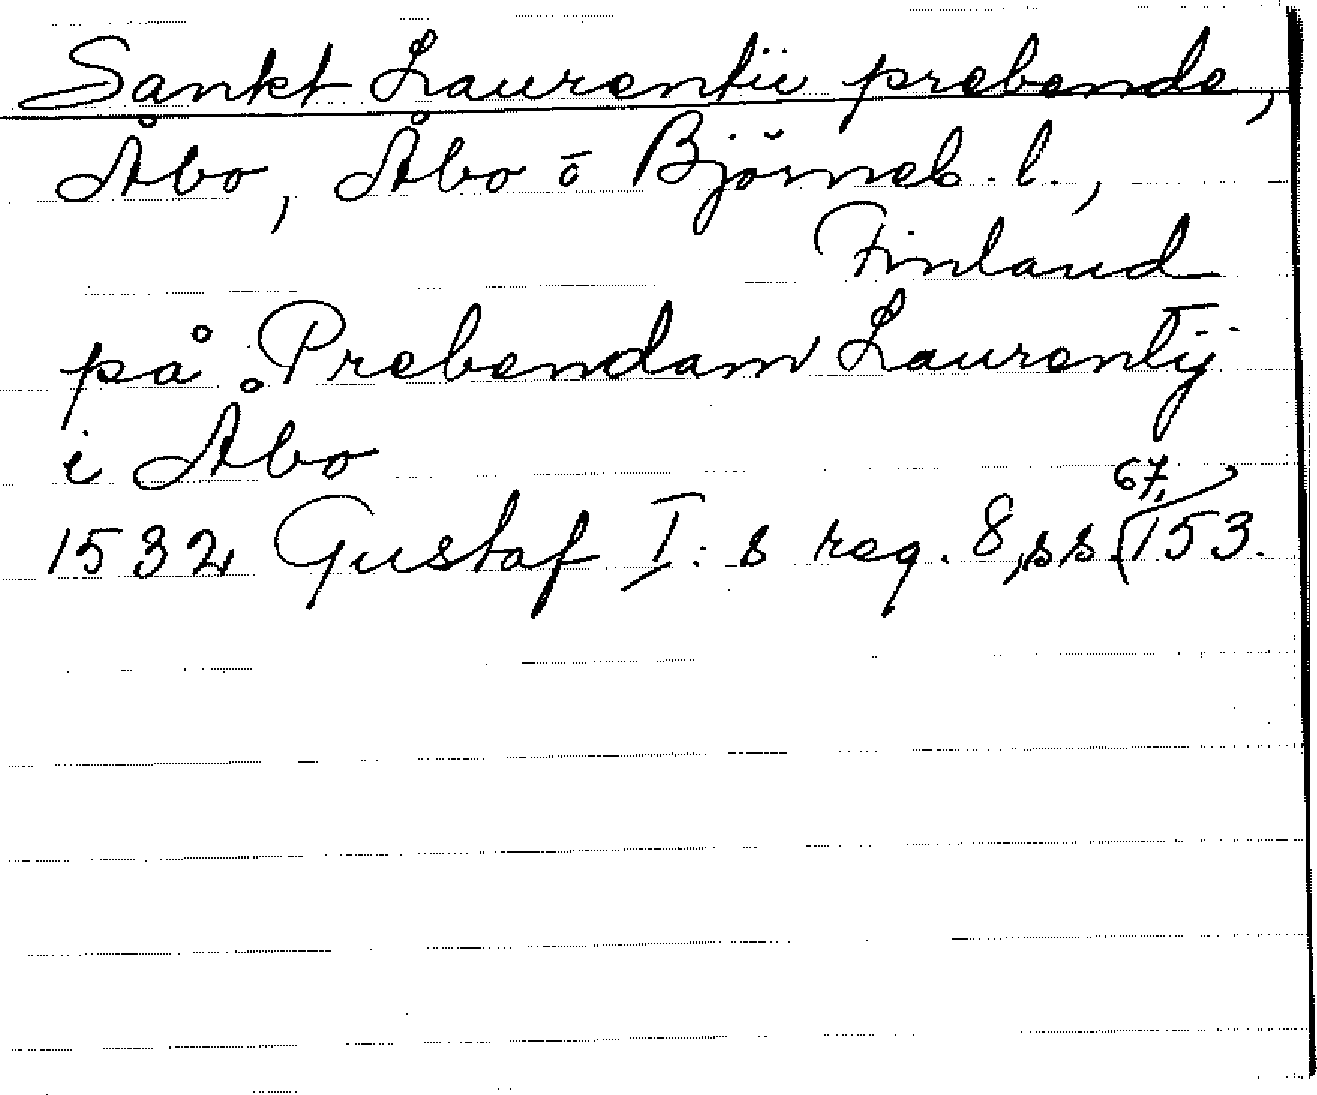 Sankt Laurentii prebende,
Åbo, Åbo o Björneb. l.,
Finland
på Prebendam Laurentÿ
i Åbo
1532 Gustaf I:s reg. 8, ss. 67, 153.